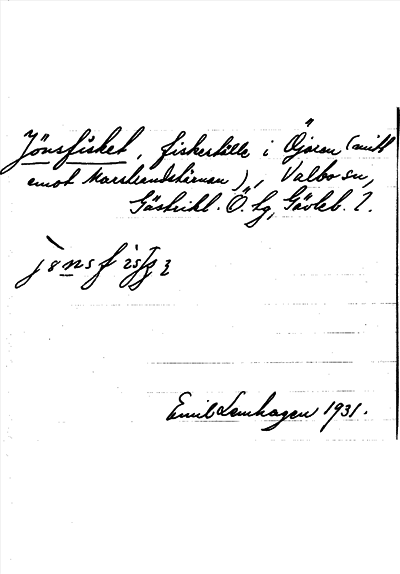 Jönsfisket, fiskeställe i Öjaren (mitt
emot Marstrandstärnan), Valbo sn,
Gästrikl. Ö. hg, Gävleb. l.
Emil Lenhagen 1931.